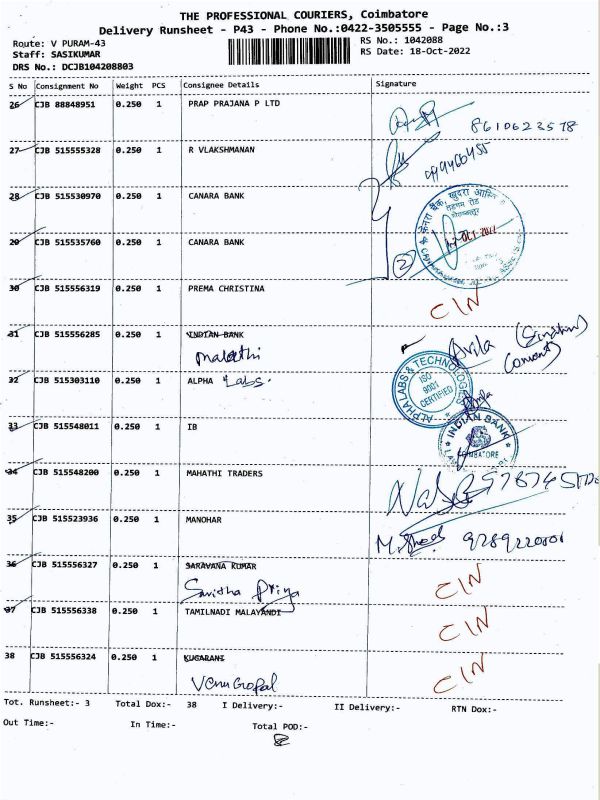 THE PROFESSIONAL COURIERS, Coimbatore
Delivery Runsheet - P43 - Phone No.:0422-3505555 - Page No.:3
Route: V PURAM-43
Staff: SASIKUMAR
DRS No.: DCJB104208803
RS No.: 1042088
RS Date: 18-Oct-2022
S No Consignment No Weight PCS Consignee Details Signature
26 CJB 88848951 0.250 1 PRAP PRAJANA P LTD 8610623578
27 CJB 515555328 0.250 1 R VLAKSHMANAN
28 CJB 515530970 0.250 1 CANARA BANK
29 CJB 515535760 0.250 1 CANARA BANK 2
30 CJB 515556319 0.250 1 PREMA CHRISTINA CIN
31 CJB 515556285 0.250 1 INDIAN BANK
Malathi
32 CJB 515303110 0.250 1 ALPHA Labs.
ALPHA LABS & TECHNOLOGIES
ISO 9001 CERTIFIED
33 CJB 515548011 0.250 1 IB
INDIAN BANK
COIMBATORE
34 CJB 515548200 0.250 1 MAHATHI TRADERS
35 CJB 515523936 0.250 1 MANOHAR
36 CJB 515556327 0.250 1 SARAVANA KUMAR CIN
Priya
37 CJB 515556338 0.250 1 TAMILNADI MALAYANDI CIN
38 CJB 515556324 0.250 1 KUGARANI CIN
Venu Gopal
Tot. Runsheet:- 3 Total Dox:- 38 I Delivery:- II Delivery:- RTN Dox:-
Out Time:- In Time:- Total POD:-